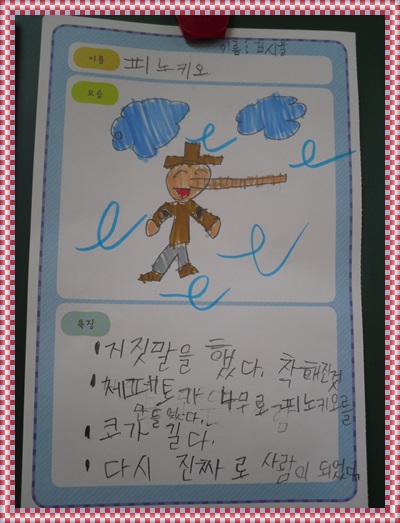 이름 : 김시율
이름 피노키오
모습
특징
거짓말을 했다. 착해진것
체페트가 나무로 피노키오를
만들었다.
코가 길다.
다시 진짜로 사람이 되었다.